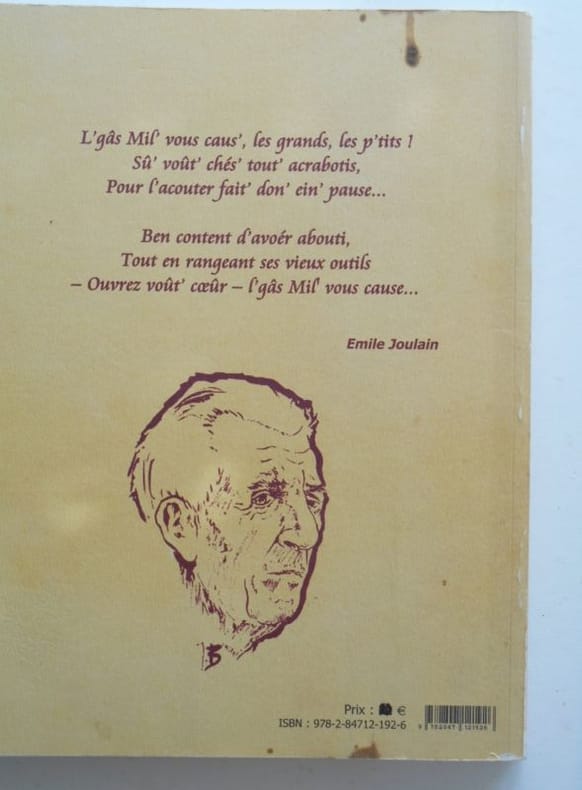 L'gâs Mil' vous caus', les grands, les p'tits !
Sû' voût' chés' tout' acrabotis,
Pour l'acouter fait' don' ein' pause...
Ben content d'avoér abouti,
Tout en rangeant ses vieux outils
– Ouvrez voût' cœûr – l'gâs Mil' vous cause...
Emile Joulain
Prix : €
ISBN : 978-2-84712-192-6